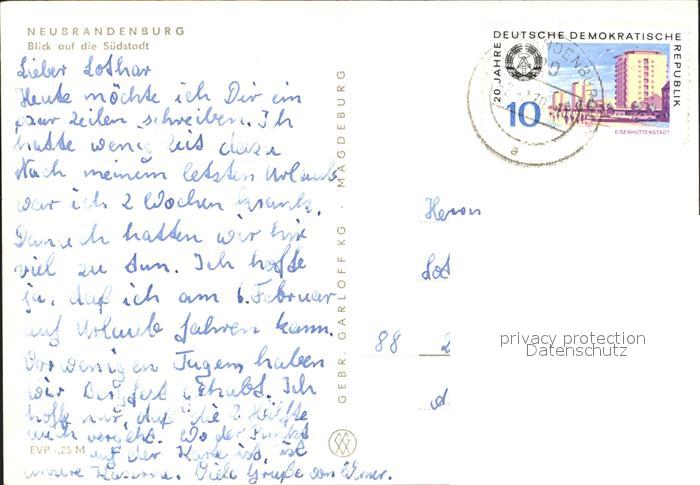 NEUBRANDENBURG
Blick auf die Südstadt
Lieber Lothar
Heute möchte ich Dir ein
paar Zeilen schreiben. Ich
hatte wenig Zeit dazu
Nach meinem letzten Urlaub
war ich 2 Wochen krank.
Danach hatten wir hier
viel zu tun. Ich hoffe
ja, daß ich am 6. Februar
auf Urlaub fahren kann.
Vor wenigen Tagen haben
wir Bergfest gehabt. Ich
hoffe nur, daß die 2. Hälfte
auch vergeht. Wo der Punkt
auf der Karte ist, ist
unsere Kaserne. Viele Grüße von
EVP -,25 M
GEBR. GARLOFF KG · MAGDEBURG
20 JAHRE DEUTSCHE DEMOKRATISCHE REPUBLIK
10
EISENHÜTTENSTADT
a
Herrn
Lot
88
privacy protection
Datenschutz